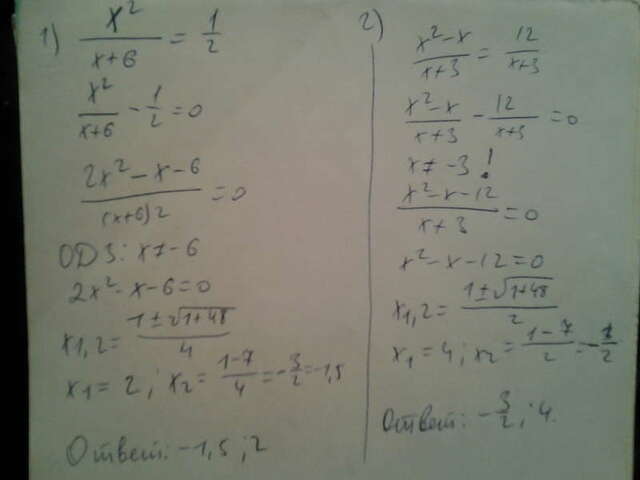 1) x²/(x+6) = 1/2
x²/(x+6) - 1/2 = 0
(2x² - x - 6)/((x+6)2) = 0
ОДЗ: x ≠ -6
2x² - x - 6 = 0
x1,2 = (1 ± √(1+48))/4
x1 = 2; x2 = (1-7)/4 = -3/2 = -1,5
Ответ: -1,5; 2
2) (x² - x)/(x+3) = 12/(x+3)
(x² - x)/(x+3) - 12/(x+3) = 0
x ≠ -3 !
(x² - x - 12)/(x+3) = 0
x² - x - 12 = 0
x1,2 = (1 ± √(1+48))/2
x1 = 4; x2 = (1-7)/2 =
Ответ: -3/2; 4.